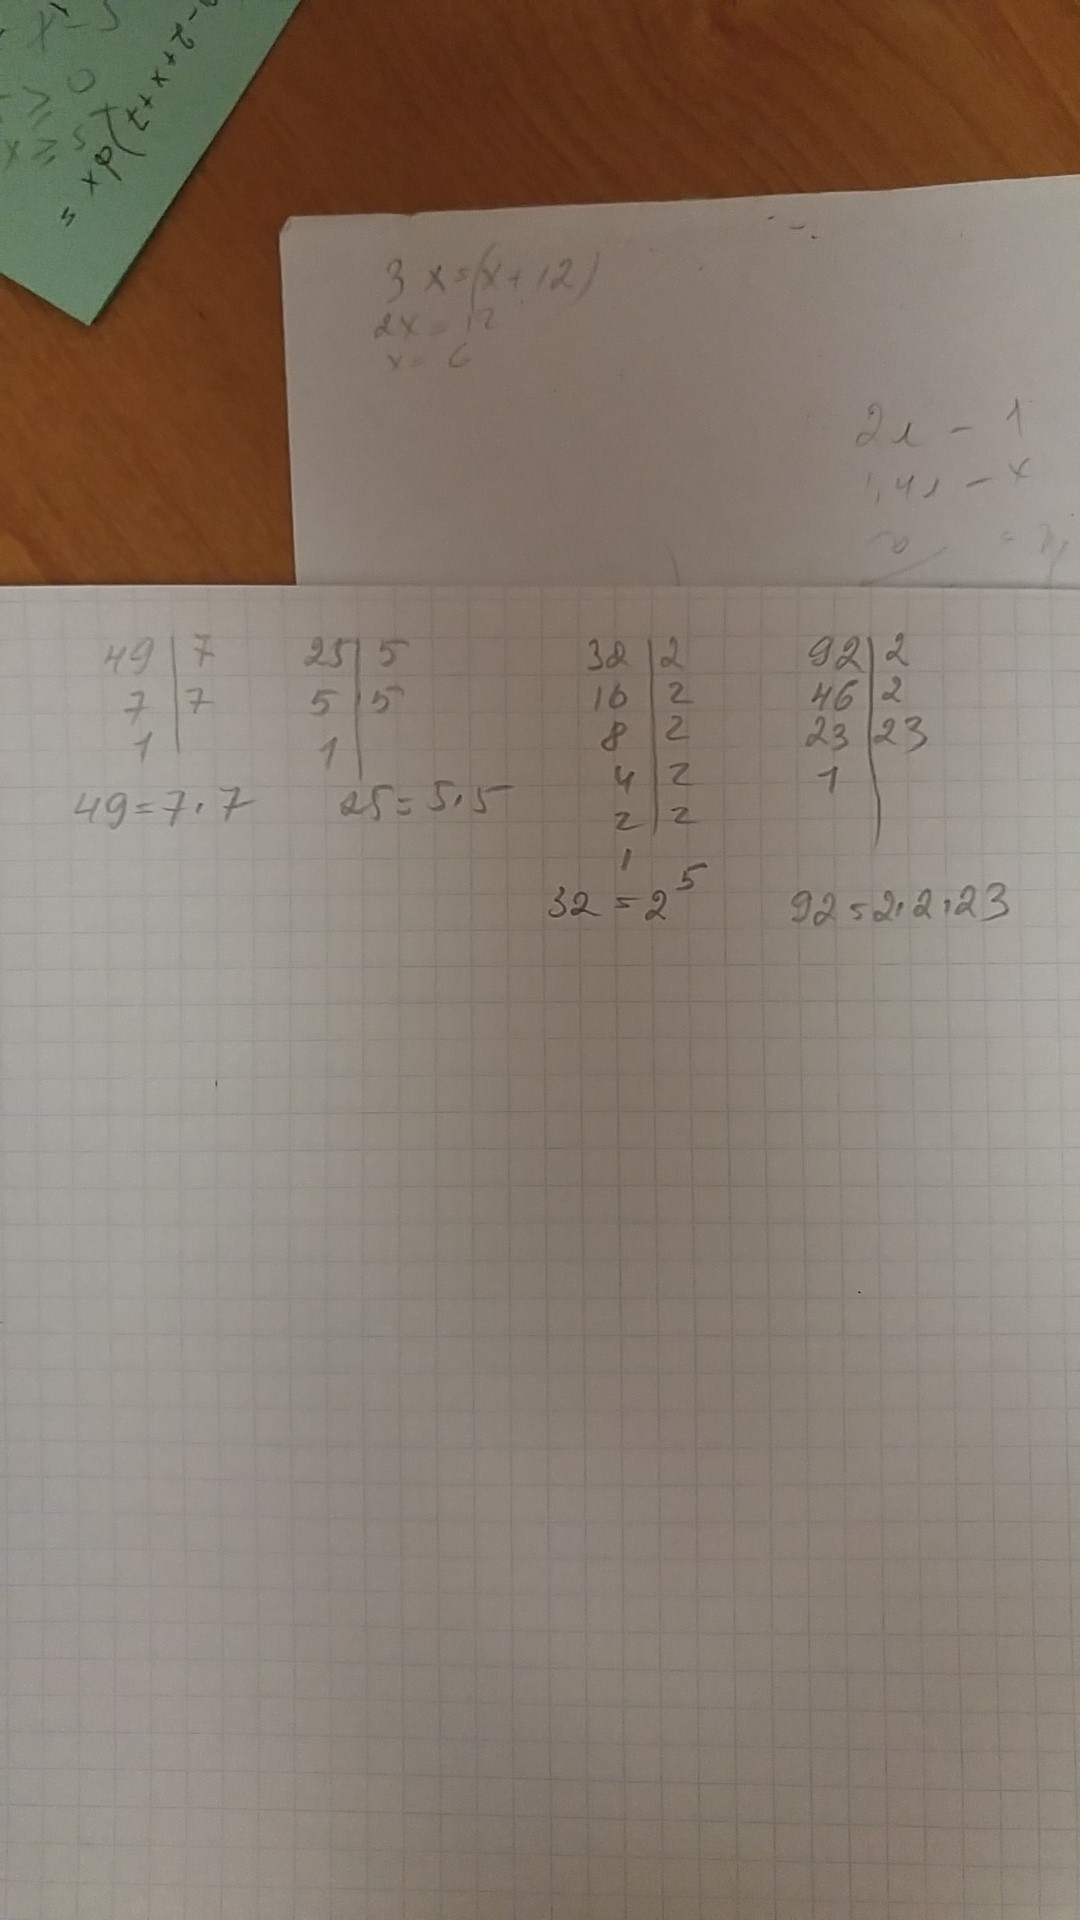 x-5
≥ 0
x ≥ 5
-2+x+7)dx =
3x=(x+12)
2x=12
x=6
2x - 1
- x
49|7 25|5 32|2 92|2
7|7 5|5 16|2 46|2
1 1 8|2 23|23
4|2 1
49=7·7 25=5·5
2|2
1
32=2⁵ 92=2·2·23